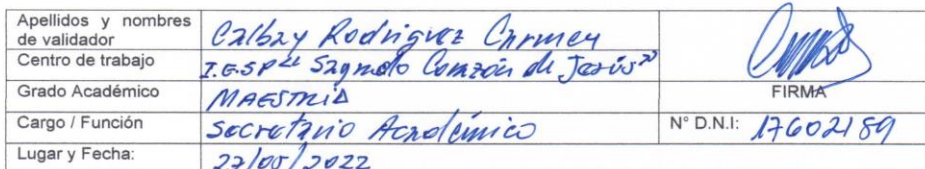 Apellidos y nombres
de validador
Calbay Rodriguez Carmen
Centro de trabajo
I.E.S.P "Sagrado Corazón de Jesús"
Grado Académico
MAESTRIA
FIRMA
Cargo / Función
Secretario Académico
N° D.N.I: 17602189
Lugar y Fecha:
27/05/2022